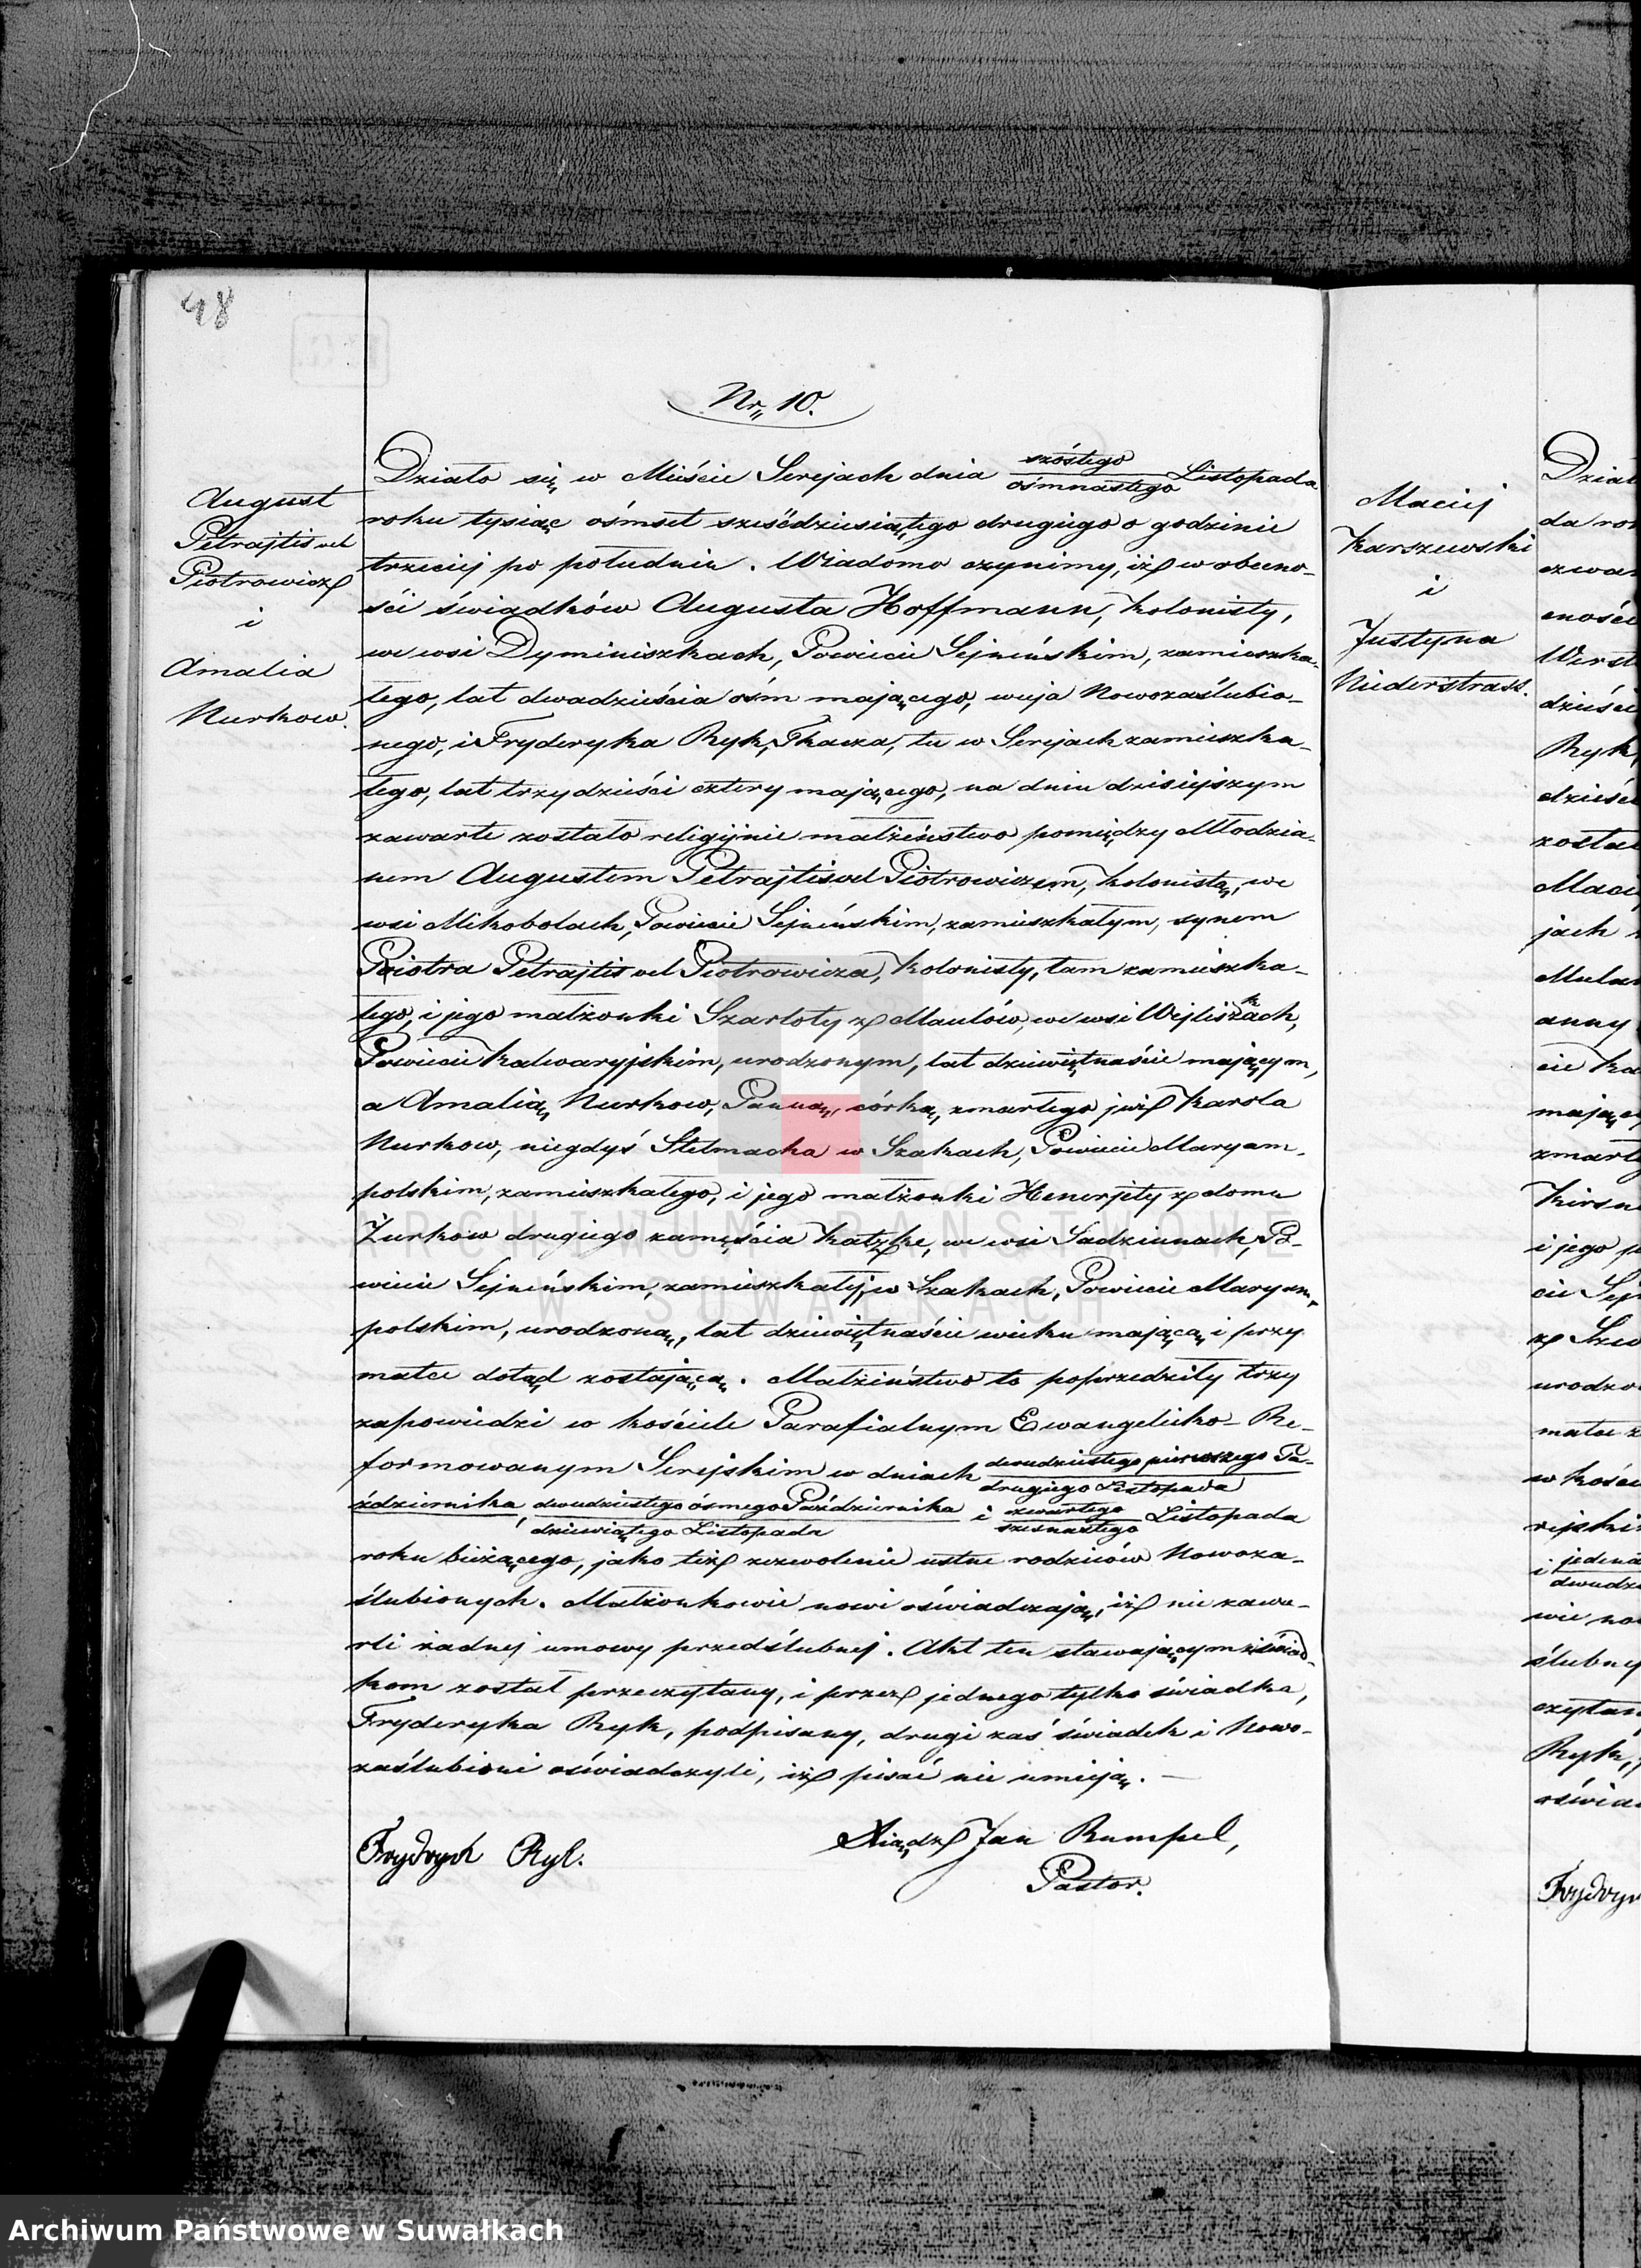 48
Nr. 10.
August
Petrajtis vel
Piotrowicz
i
Amalia
Nurkow.
Działo się w Mieście Serejach dnia szóstego / ośmnastego Listopada
roku tysiąc ośmset sześćdziesiątego drugiego o godzinie
trzeciej po południu. Wiadomo czynimy, iż w obecno-
ści świadków Augusta Hoffmann, kolonisty,
we wsi Dyminiszkach, Powiecie Sejneńskim, zamieszka-
łego, lat dwadzieścia ośm mającego, wuja Nowozaślubio-
nego, i Fryderyka Ryk, Tkacza, tu w Serejach zamieszka-
łego, lat trzydzieści cztery mającego, na dniu dzisiejszym
zawarte zostało religijnie małżeństwo pomiędzy Młodzia-
nem Augustem Petrajtis vel Piotrowiczem, kolonistą, we
wsi Mikobolach, Powiecie Sejneńskim, zamieszkałym, synem
Piotra Petrajtis vel Piotrowicza, kolonisty, tam zamieszka-
łego, i jego małżonki Szarloty z Maulów, we wsi Wejliszkach,
Powiecie Kalwaryjskim, urodzonym, lat dziewiętnaście mającym,
a Amalią Nurkow, Panną, córką, zmarłego już Karola
Nurkow, niegdyś Stelmacha w Szakach, Powiecie Maryam-
polskim, zamieszkałego, i jego małżonki Henerjety z domu
Żurkow drugiego zamęścia Katzke, we wsi Sadziunach, Po-
wiecie Sejneńskim, zamieszkałej, w Szakach, Powiecie Maryam-
polskim, urodzoną, lat dziewiętnaście wieku mającą i przy
matce dotąd zostającą. Małżeństwo to poprzedziły trzy
zapowiedzi w kościele Parafialnym Ewangelicko-Re-
formowanym Serejskim w dniach dwudziestego pierwszego Pa-
drugiego Listopada
ździernika, dwudziestego ósmego Października / dziewiątego Listopada i czwartego / szesnastego Listopada
roku bieżącego, jako też zezwolenie ustne rodziców Nowoza-
ślubionych. Małżonkowie nowi oświadczają, iż nie zawa-
rli żadnej umowy przedślubnej. Akt ten stawającym i świad-
kom został przeczytany, i przez jednego tylko świadka,
Fryderyka Ryk, podpisany, drugi zaś świadek i Nowo-
zaślubieni oświadczyli, iż pisać nie umieją.
Frydrych Ryk.
Xiądz Jan Rumpel,
Pastor.
Maciej
Karszewski
i
Justyna
Niderstrass.
Dział
da ro
czwar
cności
Werst
dzieści
Ryk,
dzieśc
zosta
Maci
jach
anny
cie Ka
mając
zmarł
Kirsn
i jego
cie Sej
z Szw
urodzo
matce z
w kości
rejski
i
wie no
ślubny
czytan
Ryk,
oświad
Frydry
ARCHIWUM PAŃSTWOWE
W SUWAŁKACH
Archiwum Państwowe w Suwałkach